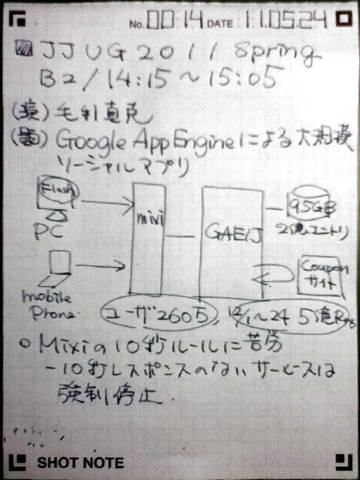 No. 00:14 DATE 11.05.24
JJUG 2011 Spring
B2/14:15~15:05
(演) 毛利直克
(題) Google AppEngineによる大規模
ソーシャルアプリ
Flash
PC
mixi
GAE/J
95GB
2億エントリ
mobile
Phone
Coupon
サイト
ユーザ260万, 12/1~24 5億Req
○ Mixiの10秒ルールに苦労
-10秒レスポンスのないサービスは
強制停止.
SHOT NOTE